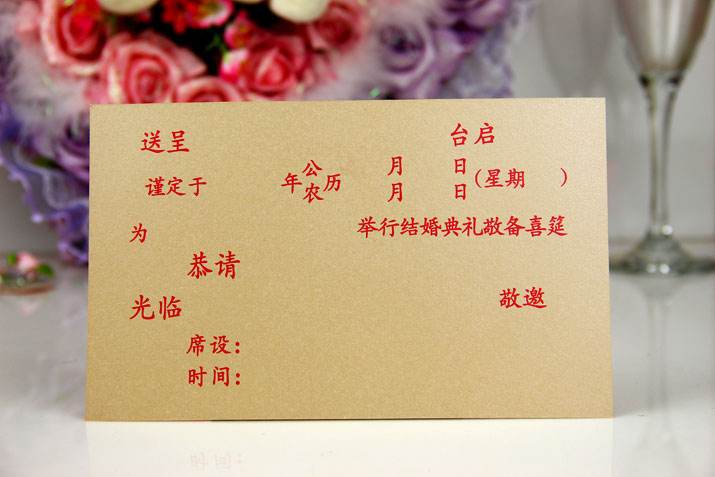 送呈 台启
谨定于 年 公历 月 日 (星期 )
农历 月 日
为 举行结婚典礼敬备喜筵
恭请
光临 敬邀
席设：
时间：